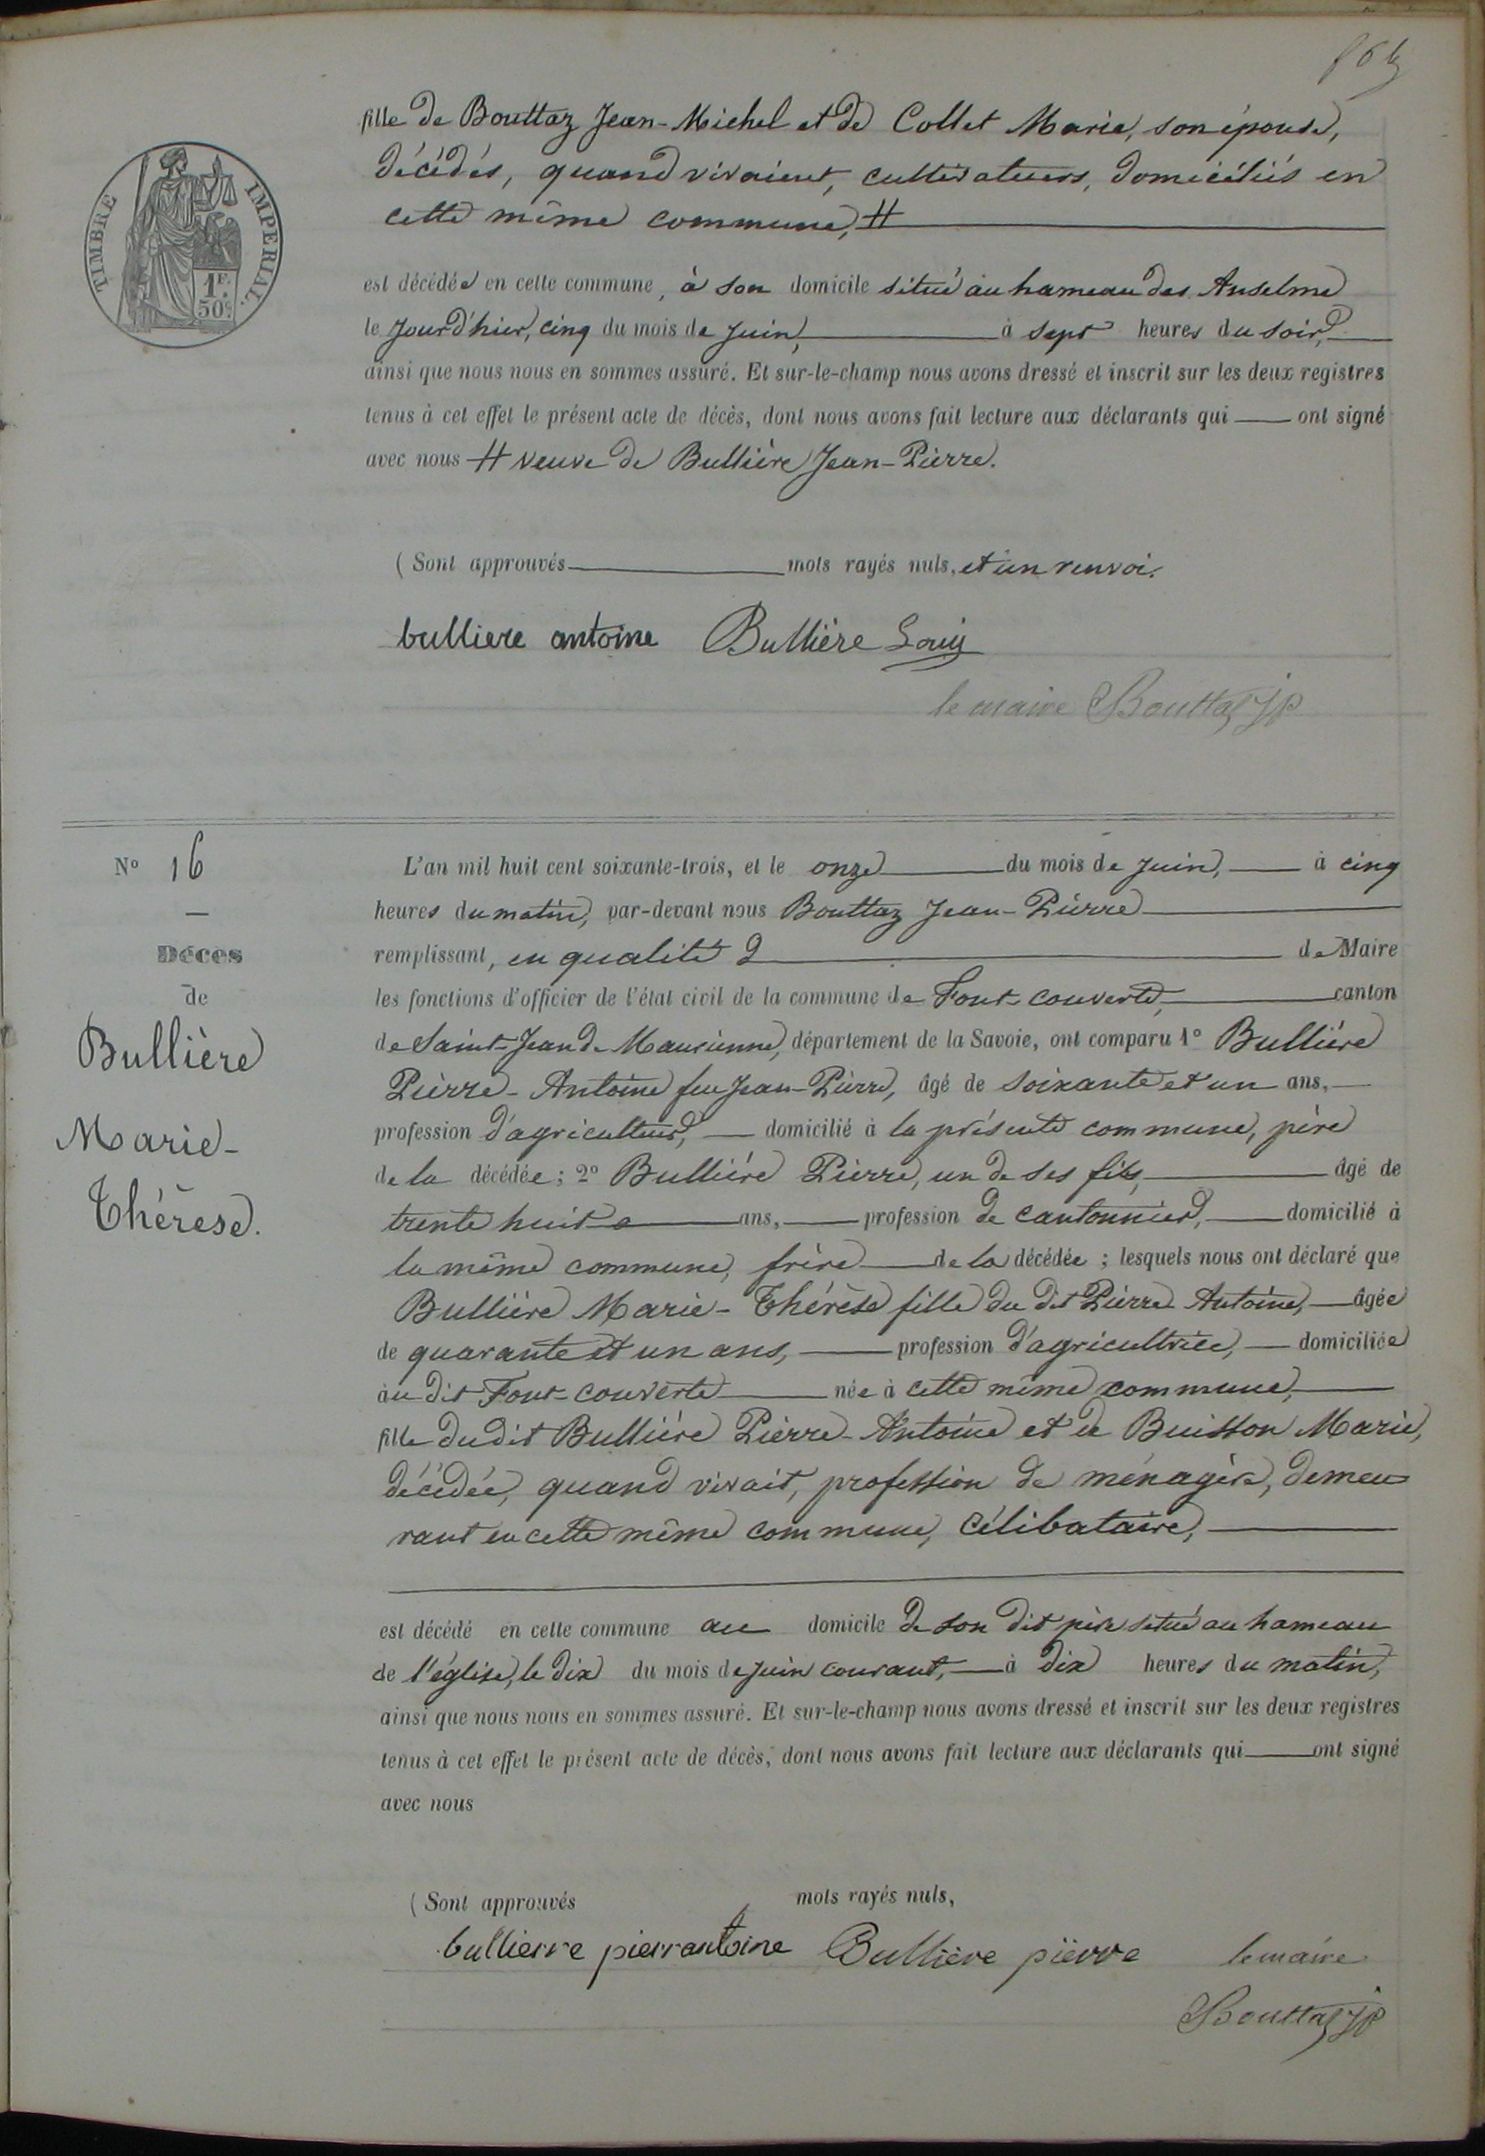 fille de Bouttaz Jean-Michel et de Collet Marie, son épouse,
décédés, quand vivaient, cultivateurs, domiciliés en
cette même commune, #
TIMBRE IMPERIAL.
1F. 50c.
est décédée en cette commune, à son domicile situé au hameau des Anselme
le jour d'hier, cinq du mois de juin, à sept heures du soir,
ainsi que nous nous en sommes assuré. Et sur-le-champ nous avons dressé et inscrit sur les deux registres
tenus à cet effet le présent acte de décès, dont nous avons fait lecture aux déclarants qui ont signé
avec nous # veuve de Bullière Jean-Pierre.
(Sont approuvés mots rayés nuls, et un renvoi.
bulliere antoine Bullière Louis
le maire Bouttaz JP
No 16
Décès
de
Bullière
Marie-
Thérèse.
L'an mil huit cent soixante-trois, et le onze du mois de juin, à cinq
heures du matin, par-devant nous Bouttaz Jean-Pierre
remplissant, en qualité d de Maire
les fonctions d'officier de l'état civil de la commune de Font-couverte, canton
de Saint-Jean de Maurienne, département de la Savoie, ont comparu 1o Bullière
Pierre-Antoine feu Jean-Pierre, âgé de soixante et un ans,
profession d'agriculteur, domicilié à la présente commune, père
de la décédée; 2o Bullière Pierre, un de ses fils, âgé de
trente huit ans, profession de cantonnier, domicilié à
la même commune, frère de la décédée; lesquels nous ont déclaré que
Bullière Marie-Thérèse fille du dit Pierre Antoine, âgée
de quarante et un ans, profession d'agricultrice, domiciliée
au dit Font-couverte née à cette même commune,
fille du dit Bullière Pierre-Antoine et de Buisson Marie,
décédée, quand vivait, profession de ménagère, demeu
rant en cette même commune, célibataire,
est décédé en cette commune au domicile de son dit père situé au hameau
de l'église, le dix du mois de juin courant, à dix heures du matin,
ainsi que nous nous en sommes assuré. Et sur-le-champ nous avons dressé et inscrit sur les deux registres
tenus à cet effet le présent acte de décès, dont nous avons fait lecture aux déclarants qui ont signé
avec nous
(Sont approuvés mots rayés nuls,
bullierre pierrantoine Bullière pierre le maire
Bouttaz JP